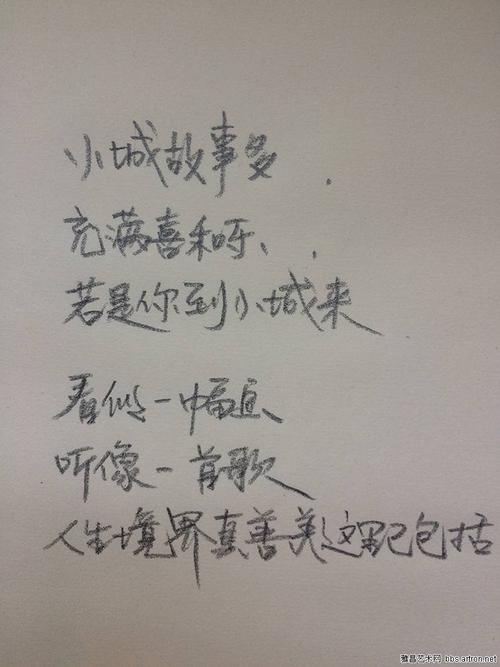 小城故事多.
充满喜和乐、.
若是你到小城来
看似一幅画、
听像一首歌
人生境界真善美这里已包括
雅昌艺术网 bbs.artron.net